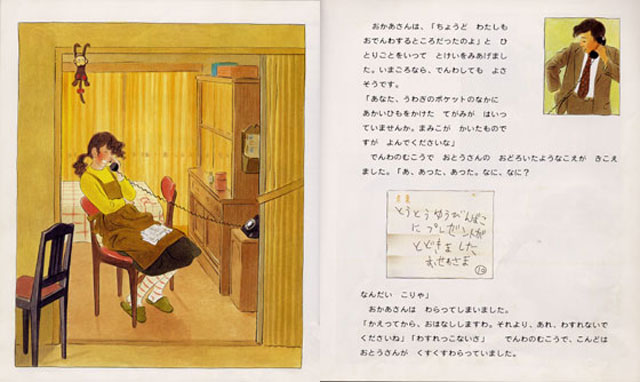 おかあさんは、「ちょうど わたしも
おでんわするところだったのよ」と ひ
とりごとをいって とけいをみあげまし
た。いまごろなら、でんわしても よさ
そうです。
「あなた、うわぎのポケットのなかに
あかいひもをかけた てがみが はいっ
ていませんか。まみこが かいたもので
すが よんでくださいな」
でんわのむこうで おとうさんの おどろいたようなこえが きこえ
ました。「あ、あった、あった。なに、なに？
とうとうゆうびんばこ
に プレゼントが
とどきました
おせわさま
なんだい こりゃ」
おかあさんは わらってしまいました。
「かえってから、おはなししますわ。それより、あれ、わすれないで
くださいね」「わすれっこないさ」 でんわのむこうで、こんどは
おとうさんが くすくすわらっていました。